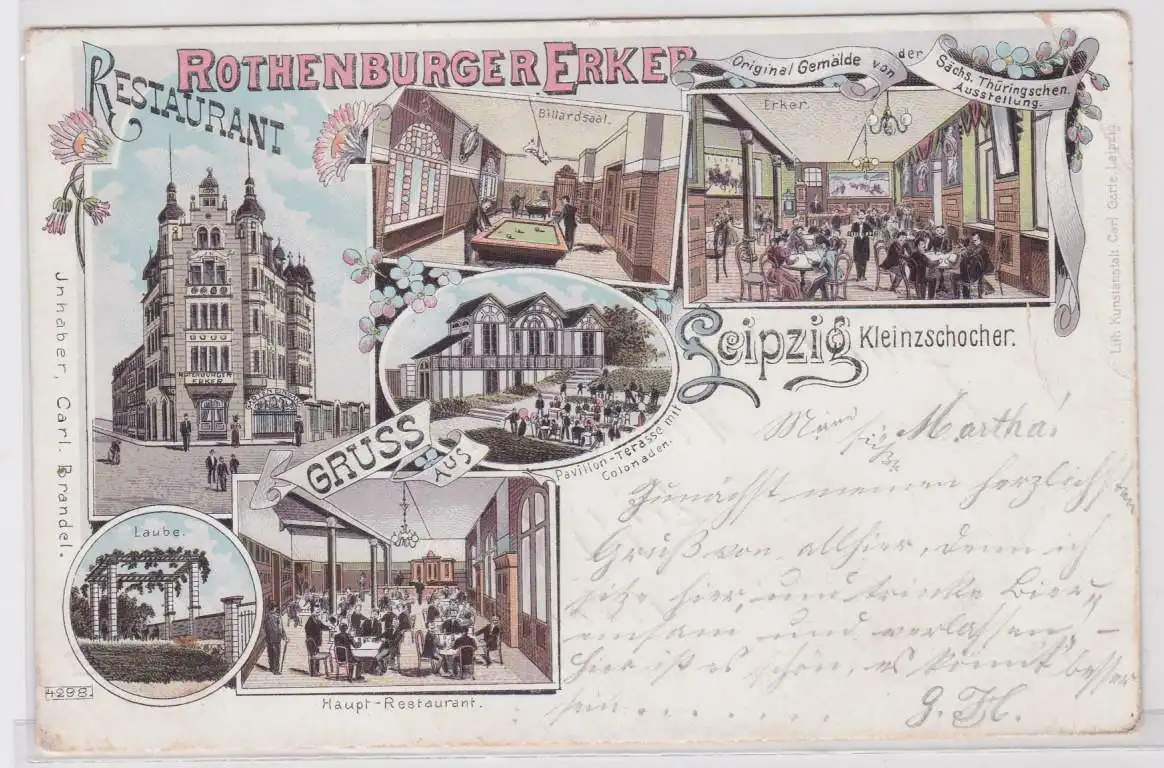 ROTHENBURGER ERKER
RESTAURANT
Original Gemälde von der
Sächs. Thüringschen.
Ausstellung.
Billardsaal.
Erker.
ROTHENBURGER
ERKER
Leipzig Kleinzschocher.
Pavillon-Terasse mit
Colonaden.
GRUSS
AUS
Laube.
Haupt-Restaurant.
4298.
Jnhaber, Carl. Brandel.
Lith. Kunstanstalt Carl Garte Leipzig
Martha!
Zunächst meinen herzlichsten
Gruß von allhier, denn ich
sitze hier, und trinke Bier,
einsam und verlassen, –
hier ist es schön, es könnt besser
sein . . . . . . . G. H.